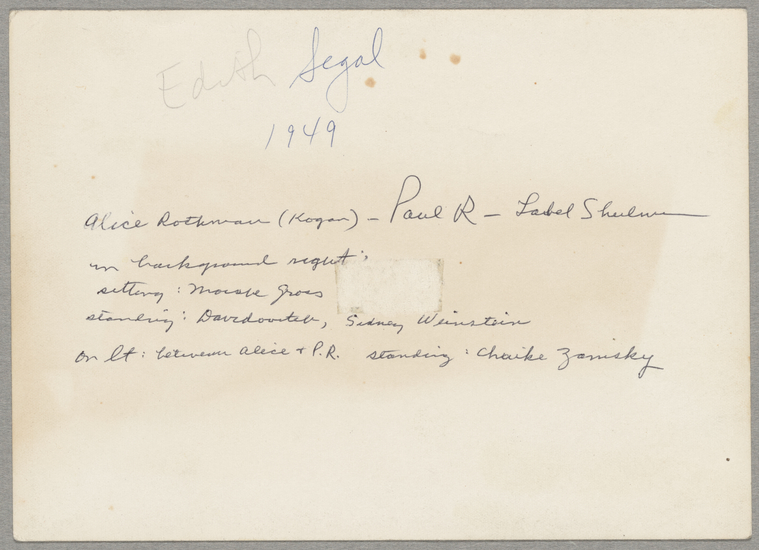 Edith Segal
1949
Alice Rothman (Kogan) – Paul R – Label Shulman
in background right:
sitting: Moishe Gross
standing: Davidovitch, Sidney Weinstein
on lt: between Alice + P.R. standing: Chaike Zamisky